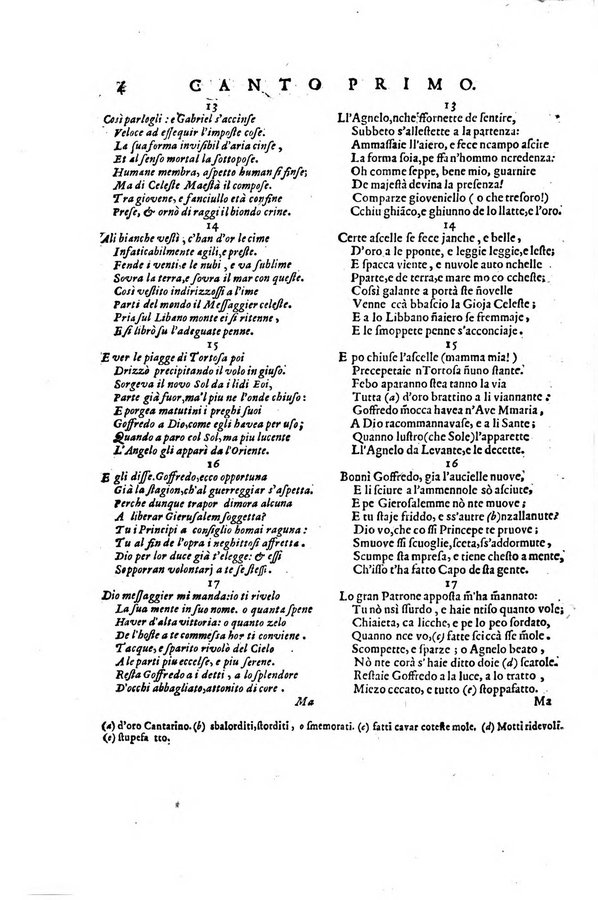 4 CANTO PRIMO.
13
Così parlogli: e Gabriel s'accinse
Veloce ad essequir l'imposte cose.
La sua forma invisibil d'aria cinse,
Et al senso mortal la sottopose.
Humane membra, aspetto human si finse;
Ma di Celeste Maestà il compose.
Tra giovene, e fanciullo età confine
Prese, & ornò di raggi il biondo crine.
14
Ali bianche vestì, c'han d'or le cime
Infaticabilmente agili, e preste.
Fende i venti, e le nubi, e va sublime
Sovra la terra, e sovra il mar con queste.
Così vestito indirizzossi a l'ime
Parti del mondo il Messaggier celeste.
Pria sul Libano monte ei si ritenne,
E si librò su l'adeguate penne.
15
E ver le piagge di Tortosa poi
Drizzò precipitando il volo in giuso.
Sorgeva il novo Sol da i lidi Eoi,
Parte già fuor, ma'l piu ne l'onde chiuso:
E porgea matutini i preghi suoi
Goffredo a Dio, come egli havea per uso;
Quando a paro col Sol, ma piu lucente
L'Angelo gli apparì da l'Oriente.
16
E gli disse. Goffredo, ecco opportuna
Già la stagion, ch'al guerreggiar s'aspetta.
Perche dunque trapor dimora alcuna
A liberar Gierusalem soggetta?
Tu i Principi a consiglio homai raguna:
Tu al fin de l'opra i neghittosi affretta.
Dio per lor duce già t'elegge: & essi
Sopporran volontarj a te se stessi.
17
Dio messaggier mi manda: io ti rivelo
La sua mente in suo nome. o quanta spene
Haver d'alta vittoria: o quanto zelo
De l'hoste a te commessa hor ti conviene.
Tacque, e sparito rivolò del Cielo
A le parti piu eccelse, e piu serene.
Resta Goffredo a i detti, a lo splendore
D'occhi abbagliato, attonito di core.
Ma
13
Ll'Agnelo, nche ffornette de sentire,
Subbeto s'allestette a la partenza:
Ammassaie ll'aiero, e fece ncampo ascire
La forma soia, pe ffa n'hommo ncredenza:
Oh comme seppe, bene mio, guarnire
De majestà devina la presenza!
Comparze gioveniello ( o che tresoro!)
Cchiu ghiãco, e ghiunno de lo llatte, e l'oro.
14
Certe ascelle se fece janche, e belle,
D'oro a le pponte, e leggie leggie, e leste;
E spacca viente, e nuvole auto nchelle
Pparte, e de terra, e mare mo co ccheste;
Cosi galante a portà ste ñovelle
Venne ccà bbascio la Gioja Celeste;
E a lo Libbano ñaiero se fremmaje,
E le smoppete penne s'acconciaje.
15
E po chiuse l'ascelle (mamma mia!)
Precepetaie nTortosa ñuno stante.
Febo aparanno stea tanno la via
Tutta (a) d'oro brattino a li viannante:
Goffredo m̃occa havea n'Ave Mmaria,
A Dio racommannavase, e a li Sante;
Quanno lustro (che Sole) l'apparette
Ll'Agnelo da Levante, e le decette.
16
Bonnì Goffredo, gia l'aucielle nuove,
E li sciure a l'ammennole sò asciute,
E pe Gierosalemme nò nte muove;
E tu staje friddo, e ss'autre (b) nzallanute?
Dio vo, che co issi Princepe te pruove:
Smuove ssi scuoglie, sceta, ss'addormute,
Scumpe sta mpresa, e tiene chesto a mente,
Ch'isso t'ha fatto Capo de sta gente.
17
Lo gran Patrone apposta m̃'ha mannato:
Tu nò nsi ssurdo, e haje ntiso quanto vole;
Chiaieta, ca llicche, e pe lo peo sordato,
Quanno nce vo, (c) fatte sciccà sse mole.
Scompette, e sparze; o Agnelo beato,
Nò nte corà s'haie ditto doie (d) scarole.
Restaie Goffredo a la luce, a lo tratto,
Miezo cecato, e tutto (e) stoppafatto.
Ma
(a) d'oro Cantarino. (b) sbalorditi, storditi, o smemorati. (c) fatti cavar coteste mole. (d) Motti ridevoli.
(e) stupefa tto.